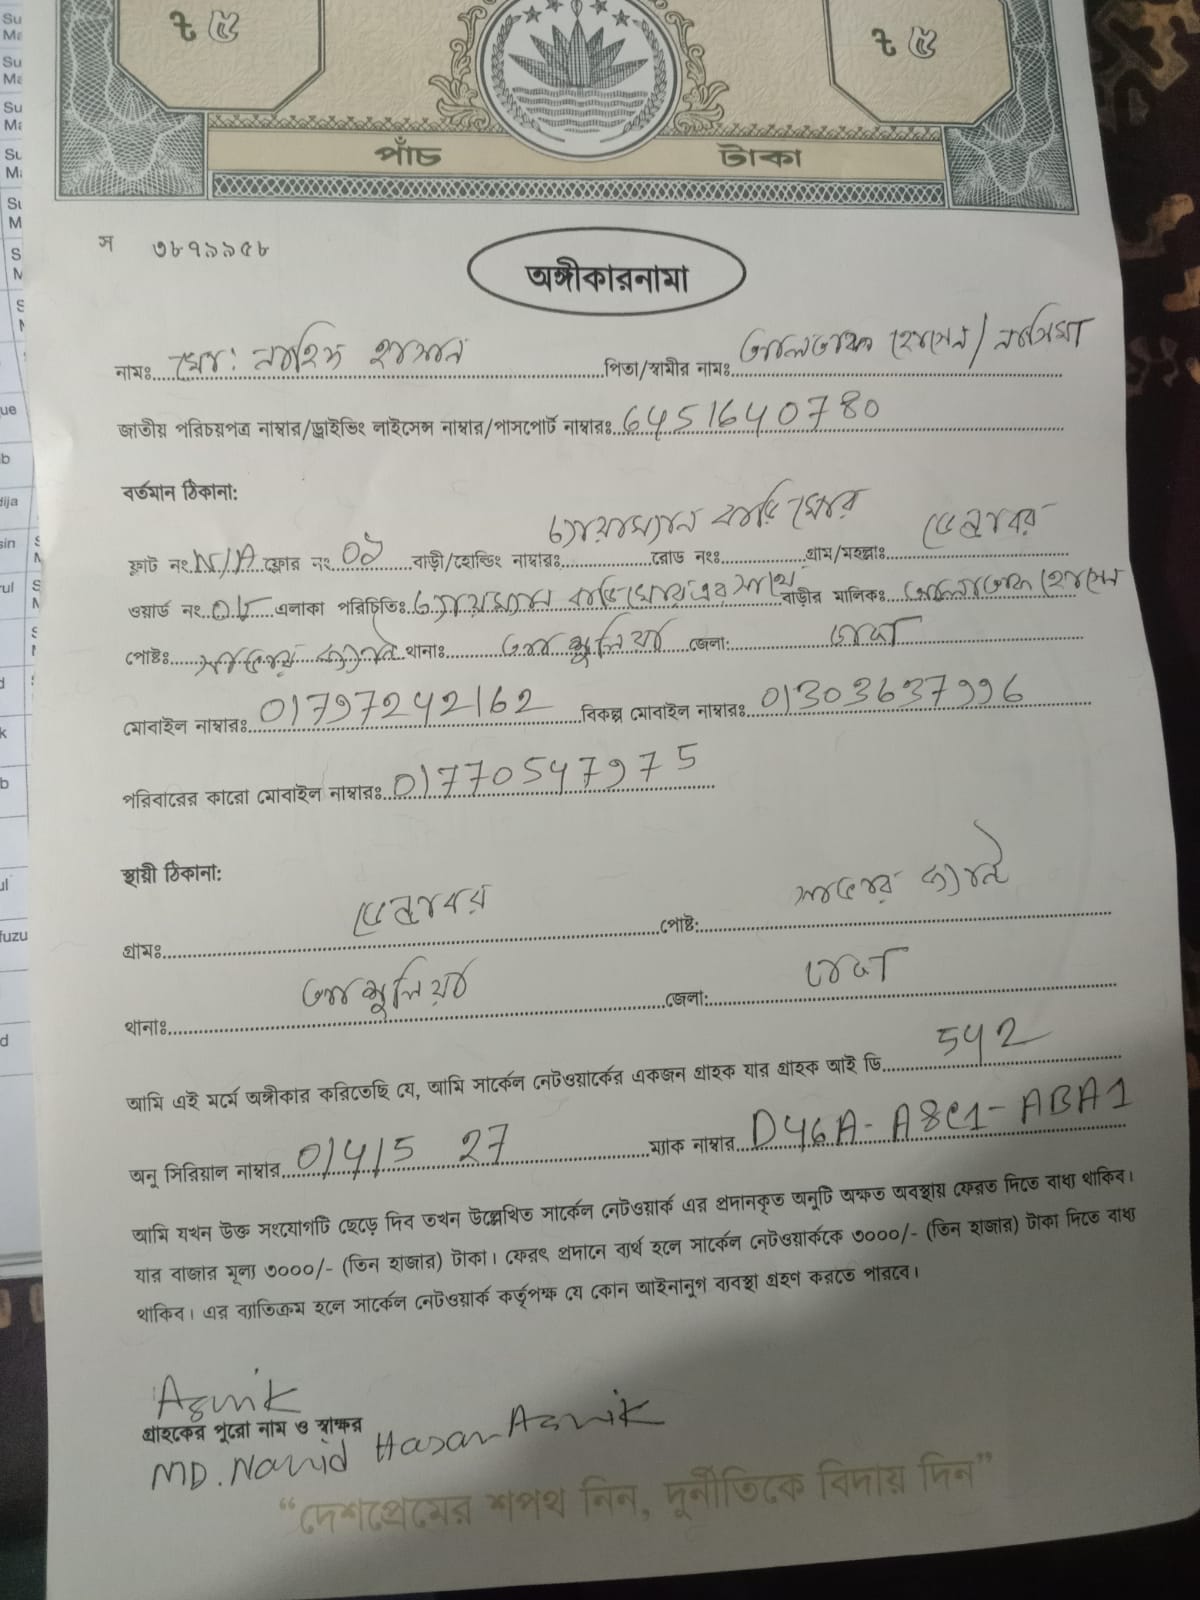 ৳ ৫ ৳ ৫
পাঁচ টাকা
স ৩৮৭৯৯৫৮
অঙ্গীকারনামা
নামঃ মোঃ নাহিদ হাসান পিতা/স্বামীর নামঃ আলতাফ হোসেন / নাসিমা
জাতীয় পরিচয়পত্র নাম্বার/ড্রাইভিং লাইসেন্স নাম্বার/পাসপোর্ট নাম্বারঃ 6451640780
বর্তমান ঠিকানা:
ফ্লাট নং N/A ফ্লোর নং বাড়ী/হোল্ডিং নাম্বারঃ রোড নংঃ গ্রাম/মহল্লাঃ
ওয়ার্ড নং এলাকা পরিচিতিঃ বাড়ীর মালিকঃ আলতাফ হোসেন
পোষ্টঃ থানাঃ আশুলিয়া জেলা: ঢাকা
মোবাইল নাম্বারঃ 01797242162 বিকল্প মোবাইল নাম্বারঃ 01303637996
পরিবারের কারো মোবাইল নাম্বারঃ 01770547975
স্থায়ী ঠিকানা:
গ্রামঃ পোষ্ট:
থানাঃ আশুলিয়া জেলা: ঢাকা
আমি এই মর্মে অঙ্গীকার করিতেছি যে, আমি সার্কেল নেটওয়ার্কের একজন গ্রাহক যার গ্রাহক আই ডি 542
অনু সিরিয়াল নাম্বার 01415 27 ম্যাক নাম্বার D46A-A8C1-ABA1
আমি যখন উক্ত সংযোগটি ছেড়ে দিব তখন উল্লেখিত সার্কেল নেটওয়ার্ক এর প্রদানকৃত অনুটি অক্ষত অবস্থায় ফেরত দিতে বাধ্য থাকিব।
যার বাজার মূল্য ৩০০০/- (তিন হাজার) টাকা। ফেরৎ প্রদানে ব্যর্থ হলে সার্কেল নেটওয়ার্ককে ৩০০০/- (তিন হাজার) টাকা দিতে বাধ্য
থাকিব। এর ব্যাতিক্রম হলে সার্কেল নেটওয়ার্ক কর্তৃপক্ষ যে কোন আইনানুগ ব্যবস্থা গ্রহণ করতে পারবে।
গ্রাহকের পুরো নাম ও স্বাক্ষর
MD. Nahid Hasan
“দেশপ্রেমের শপথ নিন, দুর্নীতিকে বিদায় দিন”